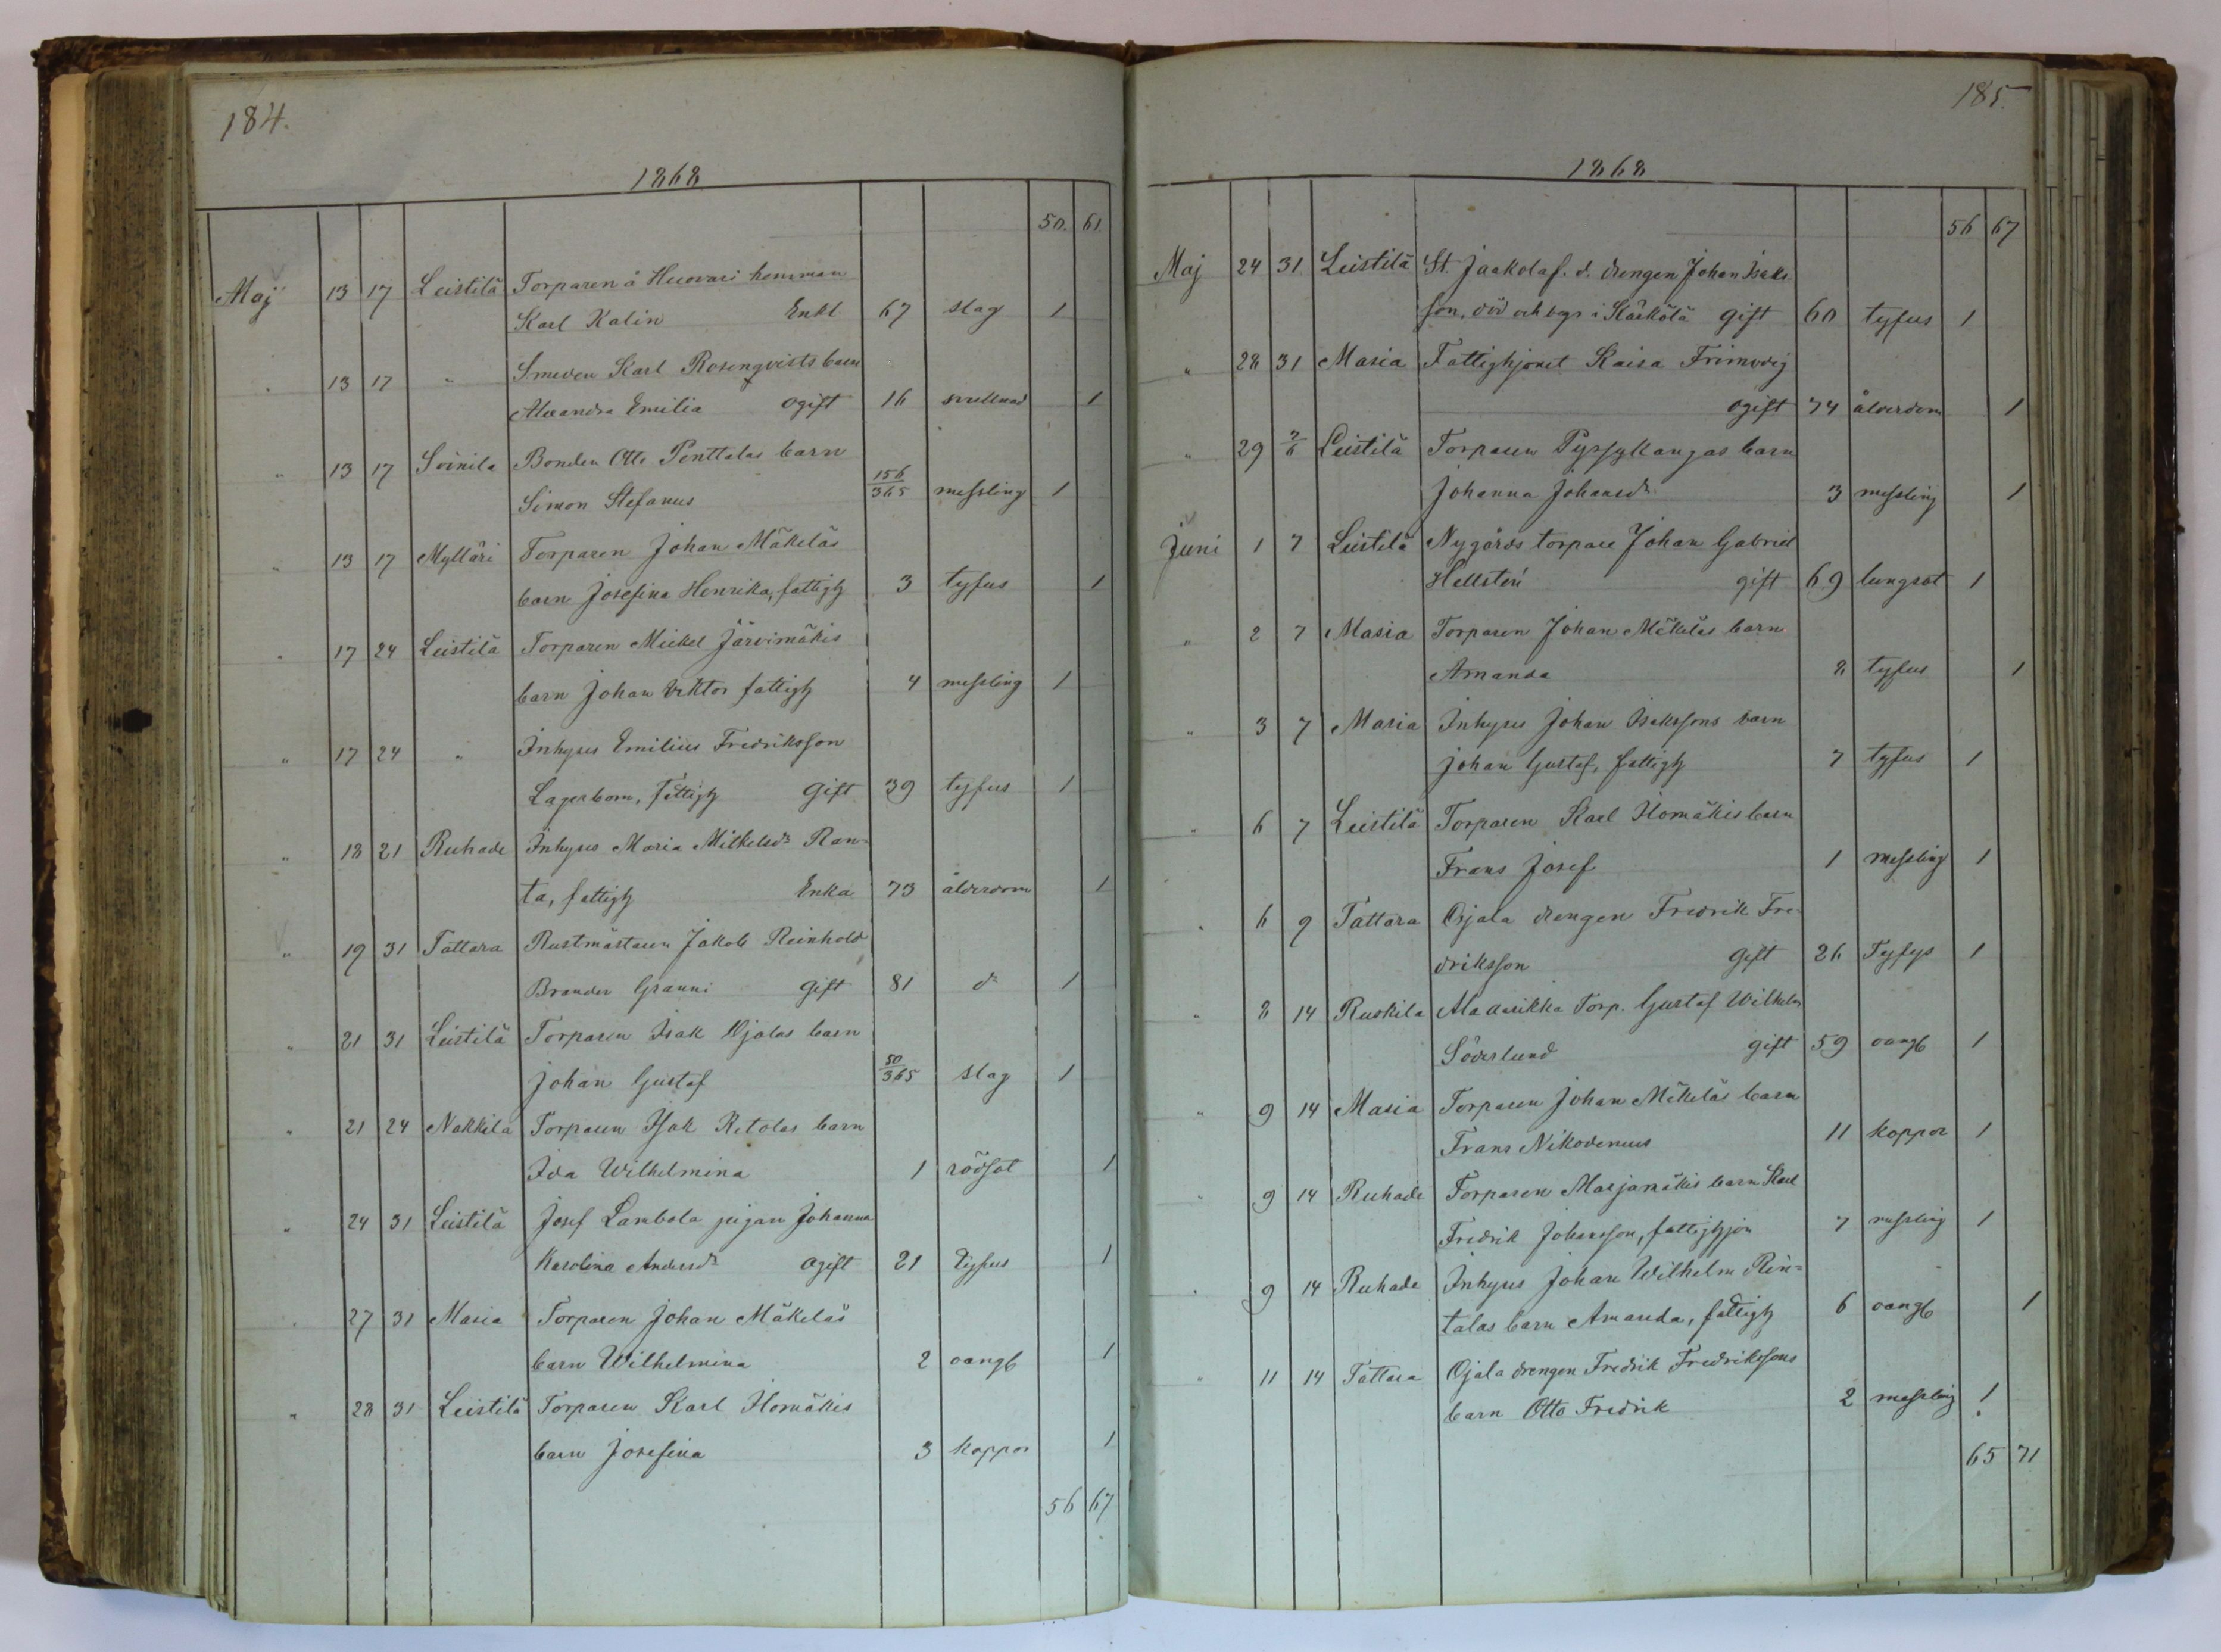 184.
1868
50. 61.
Maj 13 17 Leistilä Torparen å Huovari hemman
Karl Kalin Enkl 67 slag 1
" 13 17 " Smeden Karl Rosenqvists barn
Alexandra Emilia ogift 16 svullnad 1
" 13 17 Soinila Bonden Otto Penttalas barn
Simon Stefanus 156/365 messling 1
" 13 17 Mylläri Torparen Johan Mäkeläs
barn Josefina Henrika, fattigh 3 tyfus 1
" 17 24 Leistilä Torparen Mickel Järvimäkis
barn Johan Viktor fattigh 4 messling 1
" 17 24 " Inhyses Emilius Fredriksson
Lagerbom, fattigh Gift 39 tyfus 1
" 18 21 Ruhade Inhyses Maria Mikkelsdr Ran=
ta, fattigh Enka 73 ålderdom 1
" 19 31 Tattara Rustmästaren Jakob Reinhold
Brander Granni Gift 81 do 1
" 21 31 Leistilä Torparen Isak Ojalas barn
Johan Gustaf 50/365 slag 1
" 21 24 Nakkila Torparen Isak Ketolas barn
Ida Wilhelmina 1 rödsot 1
" 24 31 Leistilä Josef Lambola pigan Johanna
Karolina Andersdr ogift 21 Tyfus 1
" 27 31 Masia Torparen Johan Mäkeläs
barn Wilhelmina 2 oangb 1
" 28 31 Leistilä Torparen Karl Ilomäkis
barn Josefina 3 koppor 1
56 67
185.
1868
56 67
Maj 24 31 Leistilä St. Jaakola f. d. drengen Johan Isaks
son, död och begr i Kärkölä gift 60 tyfus 1
" 28 31 Masia Fattighjonet Kaisa Frimodig
ogift 74 ålderdom 1
" 29 7/6 Leistilä Torparen Pyssykangas barn
Johanna Johansdr 3 messling 1
Juni 1 7 Leistilä Nygårds torpare Johan Gabriel
Hellstén gift 69 lungsot 1
" 2 7 Masia Torparen Johan Mäkeläs barn
Amanda 8 tyfus 1
" 3 7 Masia Inhyses Johan Isakssons barn
Johan Gustaf, fattigh 7 tyfus 1
" 6 7 Leistilä Torparen Karl Ilomäkis barn
Frans Josef 1 messling 1
" 6 9 Tattara Ojala drengen Fredrik Fre-
driksson Gift 26 Tyfys 1
" 8 14 Ruskila Torp. Gustaf Wilhelm
Söderlund gift 59 oangb 1
" 9 14 Masia Torparen Johan Mäkeläs barn
Frans Nikodemus 11 koppor 1
" 9 14 Ruhade Torparen Marjamäkis barn Karl
Fredrik Johansson, fattighjon 7 messling 1
" 9 14 Ruhade Inhyses Johan Wilhelm Rin=
talas barn Amanda, fattigh 6 oangb 1
" 11 14 Tattara Ojala drengen Fredrik Fredrikssons
barn Otto Fredrik 2 messling 1
65 71